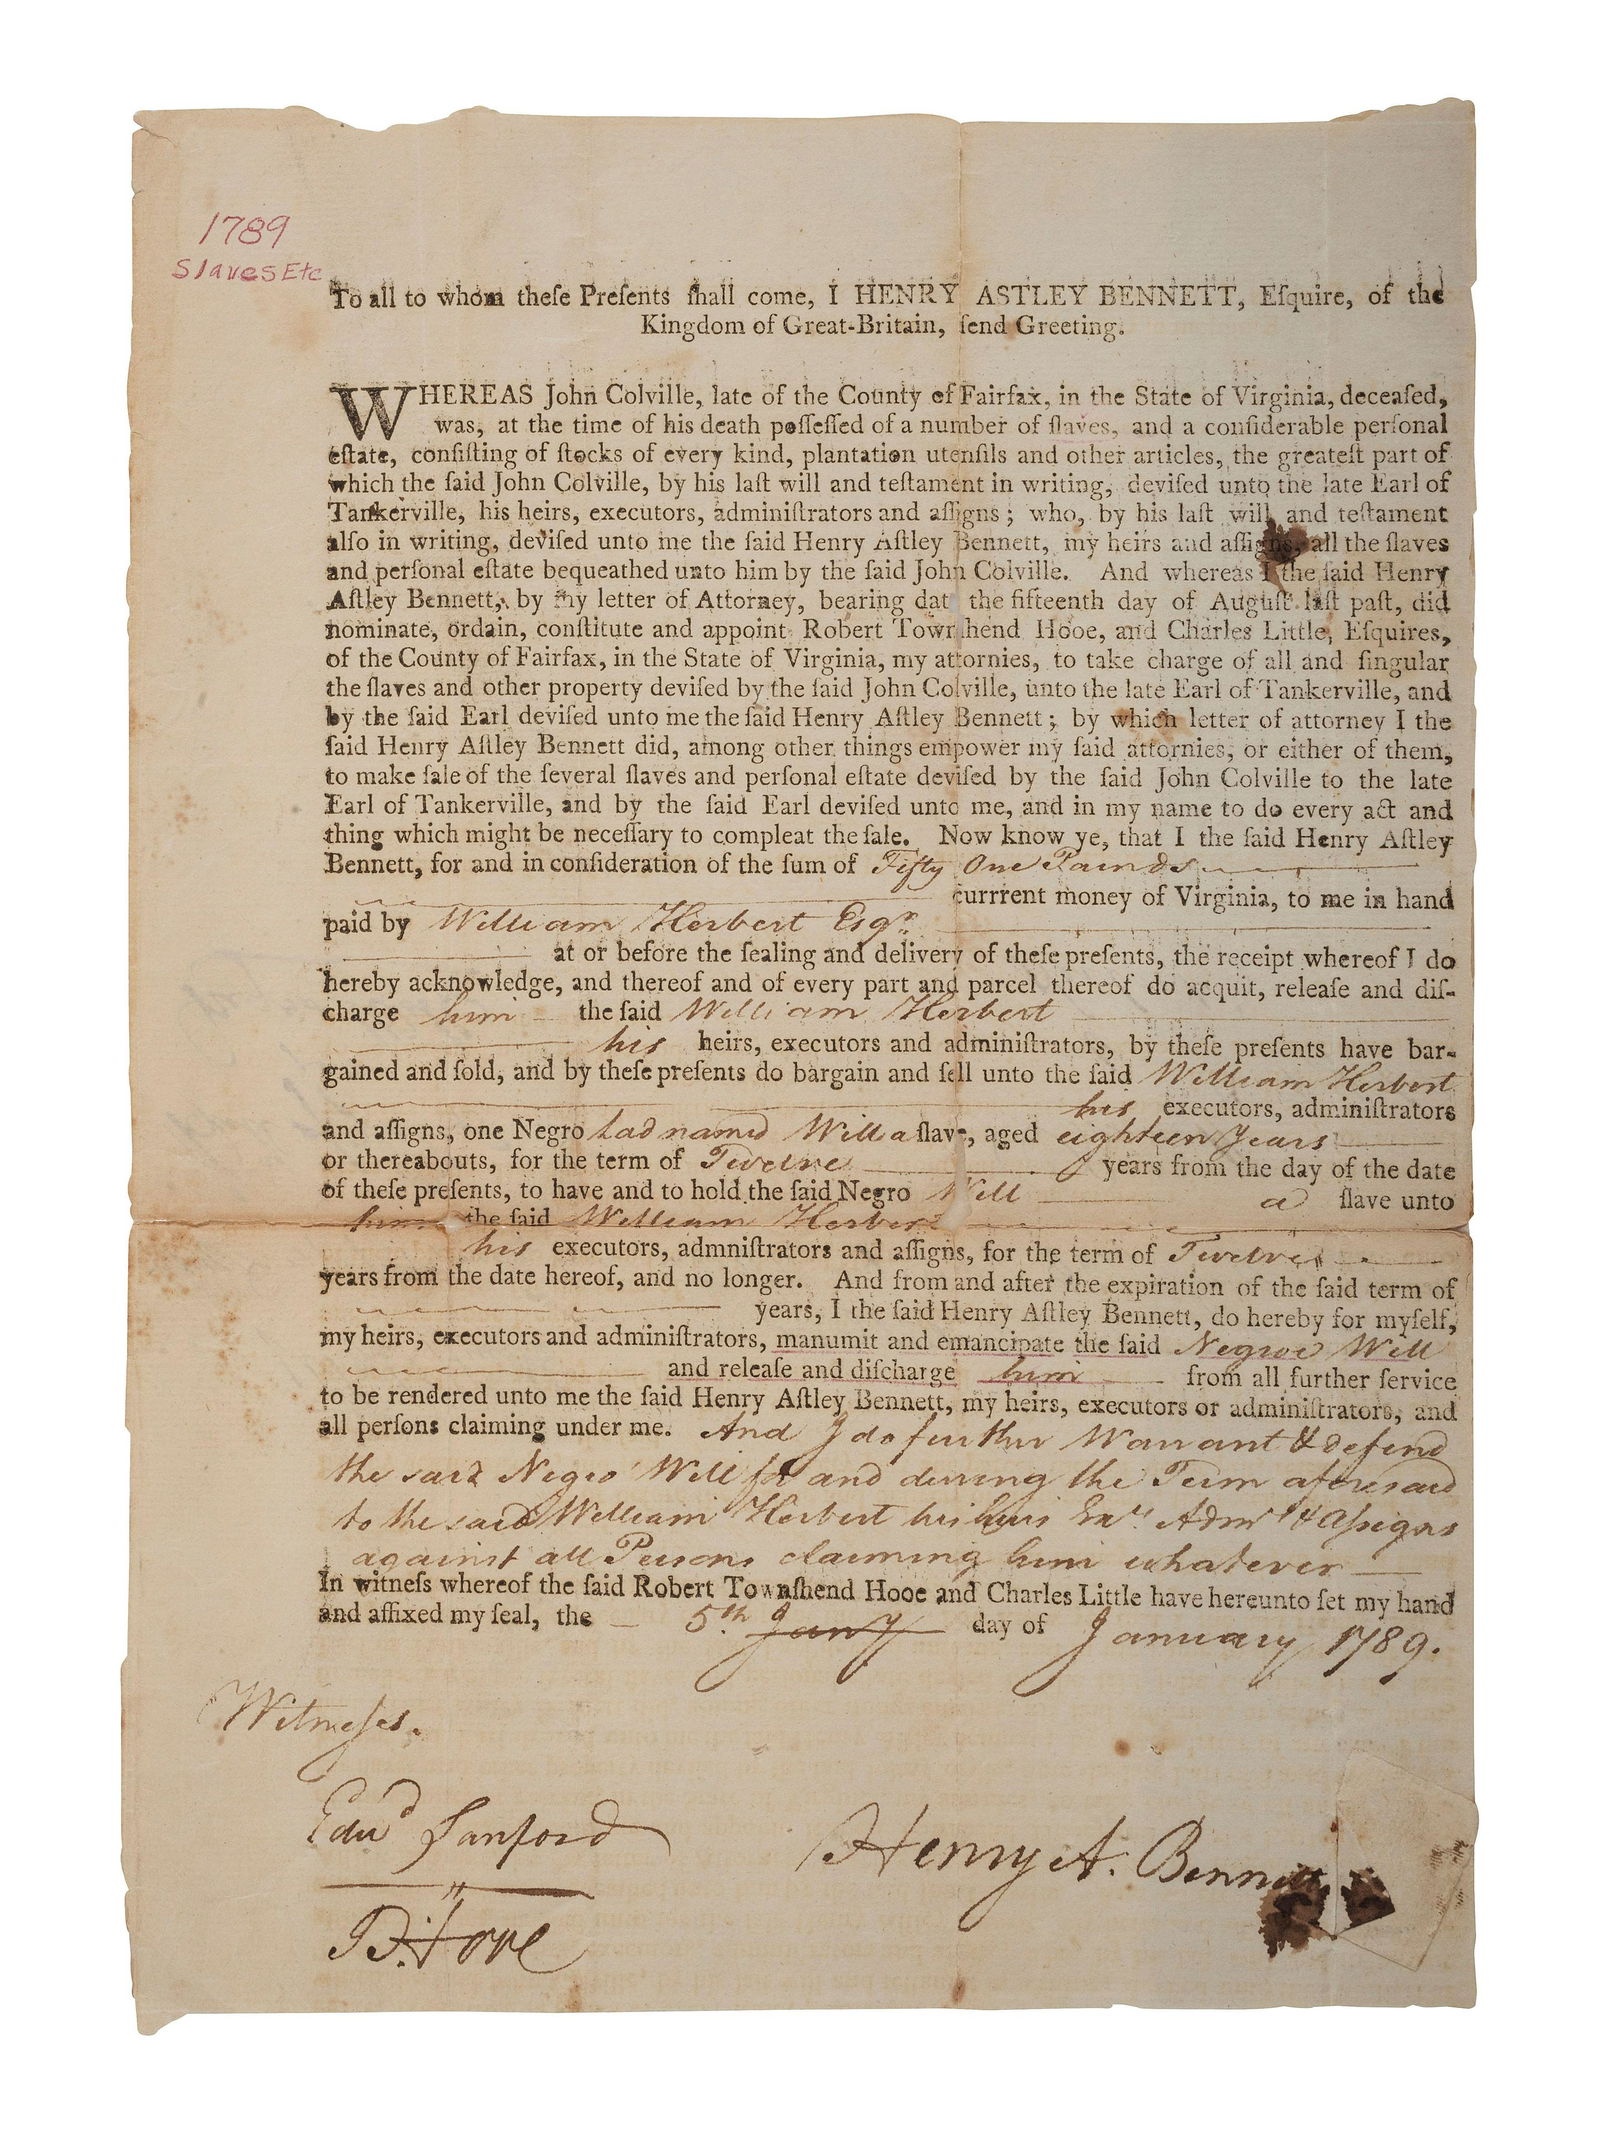 1789
Slaves Etc
To all to whom theſe Preſents ſhall come, I HENRY ASTLEY BENNETT, Eſquire, of the
Kingdom of Great-Britain, ſend Greeting.
WHEREAS John Colville, late of the County of Fairfax, in the State of Virginia, deceaſed,
was, at the time of his death poſſeſſed of a number of ſlaves, and a conſiderable perſonal
eſtate, conſiſting of ſtocks of every kind, plantation utenſils and other articles, the greateſt part of
which the ſaid John Colville, by his laſt will and teſtament in writing, deviſed unto the late Earl of
Tankerville, his heirs, executors, adminiſtrators and aſſigns; who, by his laſt will and teſtament
alſo in writing, deviſed unto me the ſaid Henry Aſtley Bennett, my heirs and aſſigns, all the ſlaves
and perſonal eſtate bequeathed unto him by the ſaid John Colville. And whereas I the ſaid Henry
Aſtley Bennett, by my letter of Attorney, bearing dat the fifteenth day of Auguſt laſt paſt, did
nominate, ordain, conſtitute and appoint Robert Townſhend Hooe, and Charles Little, Eſquires,
of the County of Fairfax, in the State of Virginia, my attornies, to take charge of all and ſingular
the ſlaves and other property deviſed by the ſaid John Colville, unto the late Earl of Tankerville, and
by the ſaid Earl deviſed unto me the ſaid Henry Aſtley Bennett; by which letter of attorney I the
ſaid Henry Aſtley Bennett did, among other things empower my ſaid attornies, or either of them,
to make ſale of the ſeveral ſlaves and perſonal eſtate deviſed by the ſaid John Colville to the late
Earl of Tankerville, and by the ſaid Earl deviſed unto me, and in my name to do every act and
thing which might be neceſſary to compleat the ſale. Now know ye, that I the ſaid Henry Aſtley
Bennett, for and in conſideration of the ſum of Fifty One Pounds
currrent money of Virginia, to me in hand
paid by William Herbert Esqr
at or before the ſealing and delivery of theſe preſents, the receipt whereof I do
hereby acknowledge, and thereof and of every part and parcel thereof do acquit, releaſe and diſ-
charge him the ſaid William Herbert
his heirs, executors and adminiſtrators, by theſe preſents have bar-
gained and ſold, and by theſe preſents do bargain and ſell unto the ſaid William Herbert
his executors, adminiſtrators
and aſſigns, one Negro Lad named Will a ſlave, aged eighteen years
or thereabouts, for the term of Twelve years from the day of the date
of theſe preſents, to have and to hold the ſaid Negro Will a ſlave unto
him the ſaid William Herbert
his executors, admniſtrators and aſſigns, for the term of Twelve
years from the date hereof, and no longer. And from and after the expiration of the ſaid term of
years, I the ſaid Henry Aſtley Bennett, do hereby for myſelf,
my heirs, executors and adminiſtrators, manumit and emancipate the ſaid Negroe Will
and releaſe and diſcharge him from all further ſervice
to be rendered unto me the ſaid Henry Aſtley Bennett, my heirs, executors or adminiſtrators, and
all perſons claiming under me. And I do further Warrant & defend
the said Negro Will for and during the Term aforesaid
to the said William Herbert his heirs Exrs Admrs & aſsigns
against all Persons claiming him whatever
In witneſs whereof the ſaid Robert Townſhend Hooe and Charles Little have hereunto ſet my hand
and affixed my ſeal, the 5th Jany day of January 1789.
Witneſses.
Edwd Sanford
Henry A. Bennett